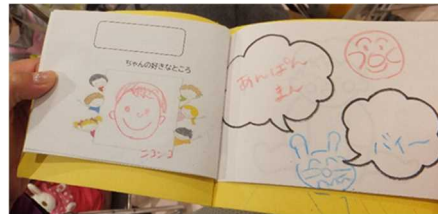 ちゃんの好きなところ
ニコニコ
あんぱん
まん
バイー